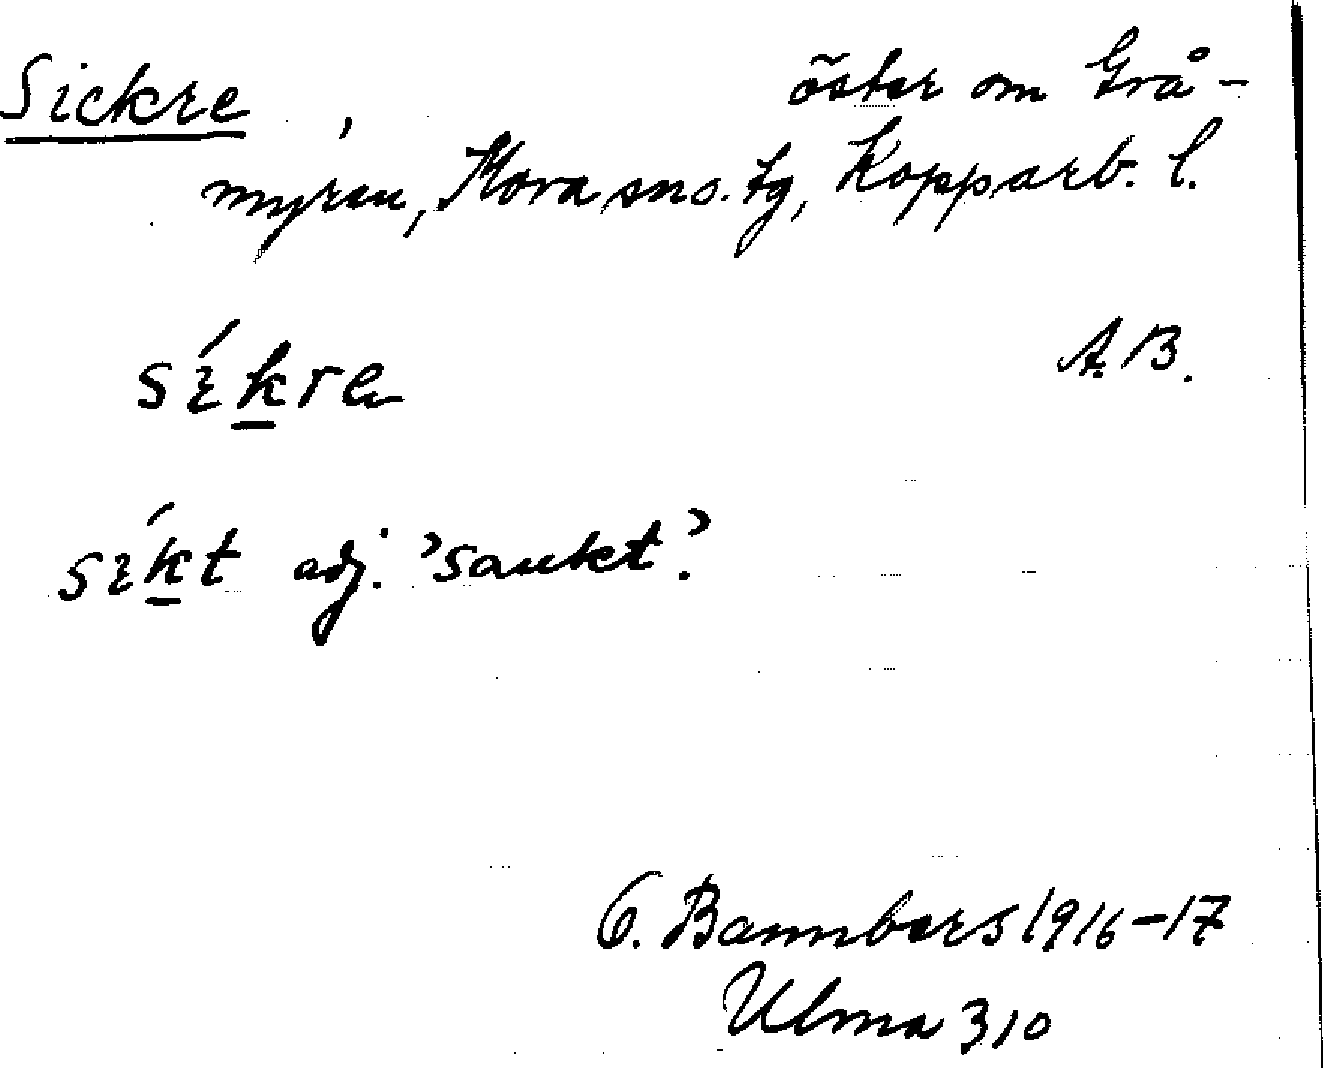 Sickre, öster om Grå-
myren, Mora sns. tg, Kopparb. l.
síkre A.B.
síkt adj. 'sankt'.
O. Bannbers 1916-17
Ulma 310